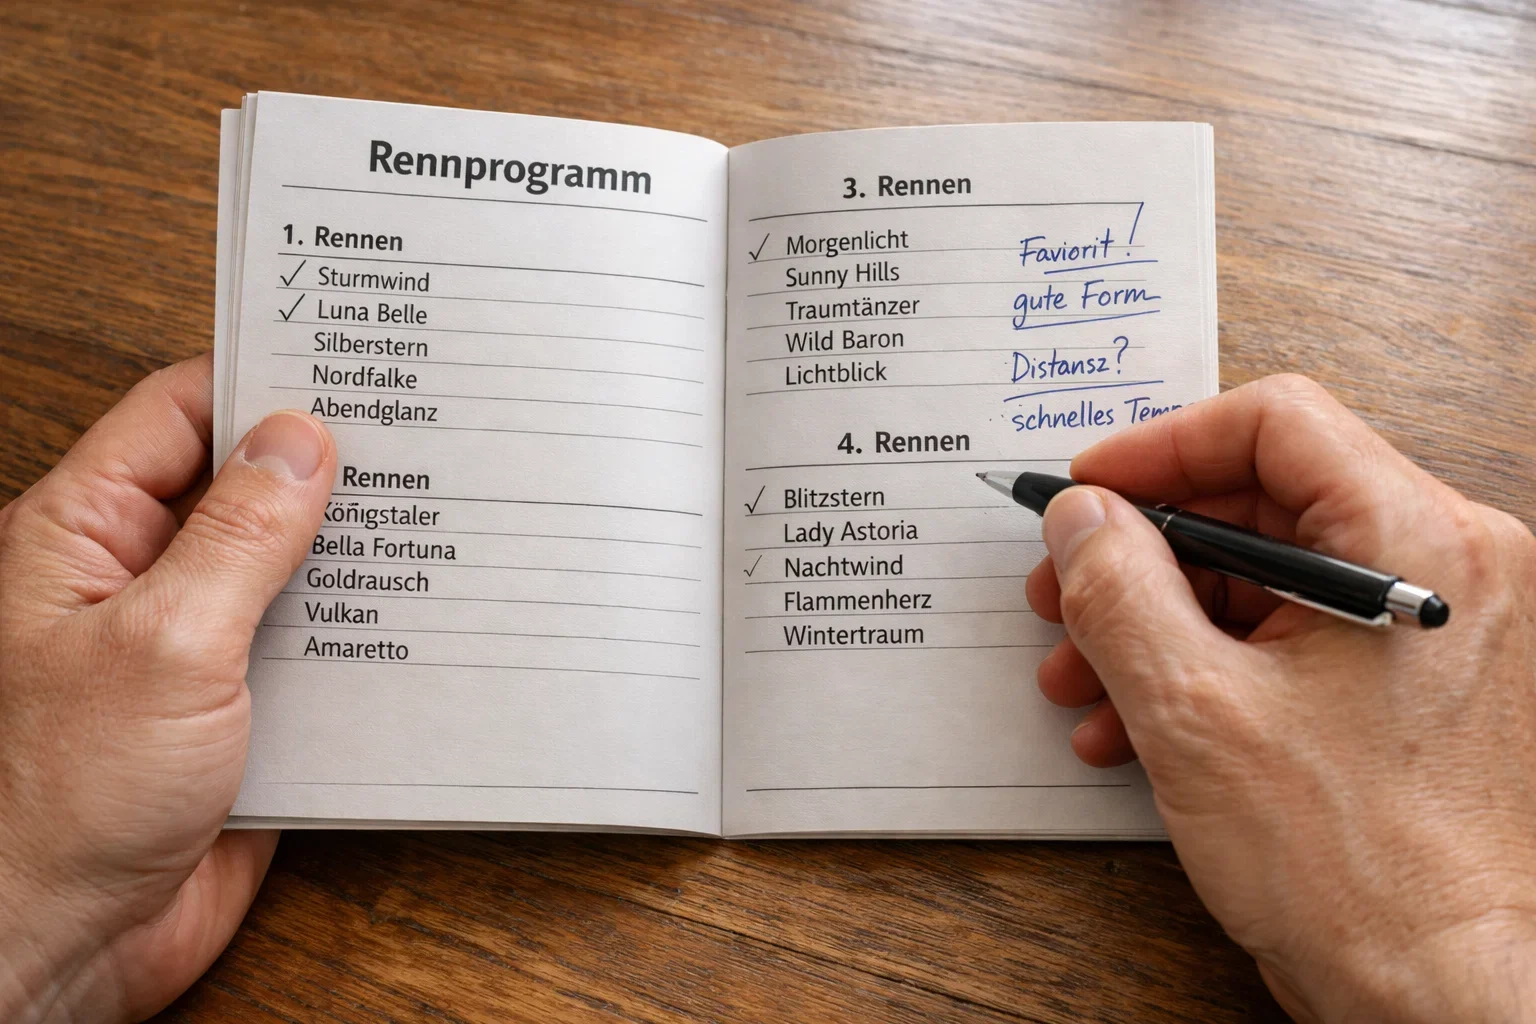 Rennprogramm
1. Rennen
✓ Sturmwind
✓ Luna Belle
Silberstern
Nordfalke
Abendglanz
Rennen
Königstaler
Bella Fortuna
Goldrausch
Vulkan
Amaretto
3. Rennen
✓ Morgenlicht
Sunny Hills
Traumtänzer
Wild Baron
Lichtblick
Faviorit!
gute Form
Distansz?
schnelles
4. Rennen
✓ Blitzstern
Lady Astoria
✓ Nachtwind
Flammenherz
Wintertraum